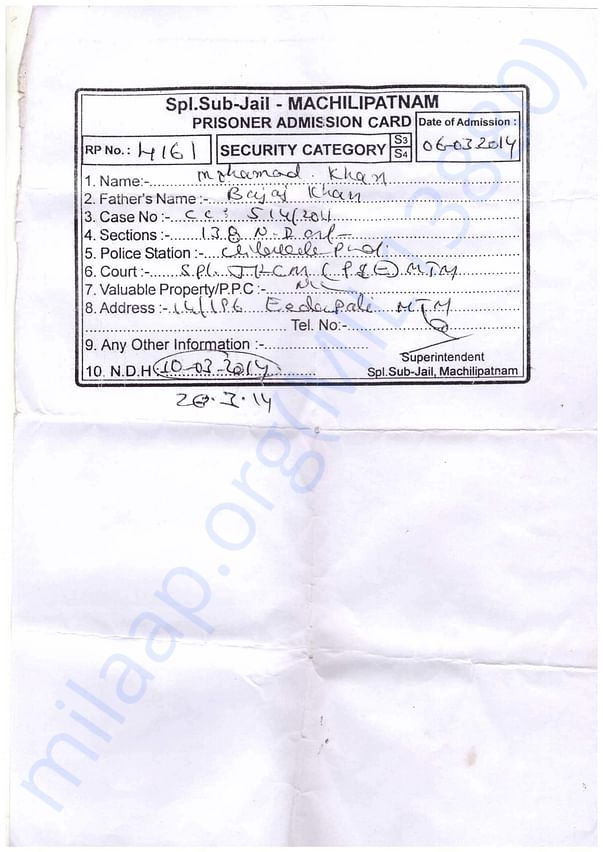 Spl.Sub-Jail - MACHILIPATNAM
PRISONER ADMISSION CARD
Date of Admission :
06-03-2014
RP No. : 4161
SECURITY CATEGORY S3 S4
1. Name:- Mohamad. Khan
2. Father's Name :- Bajaj Khan
3. Case No :- CC: 514/2011
4. Sections :- 138 N.D
5. Police Station :-
6. Court :- Spl. MTM
7. Valuable Property/P.P.C :- NIL
8. Address :- 14/196 MTM
Tel. No:-
9. Any Other Information :-
10. N.D.H 10-03-2014
Superintendent
Spl.Sub-Jail, Machilipatnam
20.3.14
milaap.org(MIL13880)